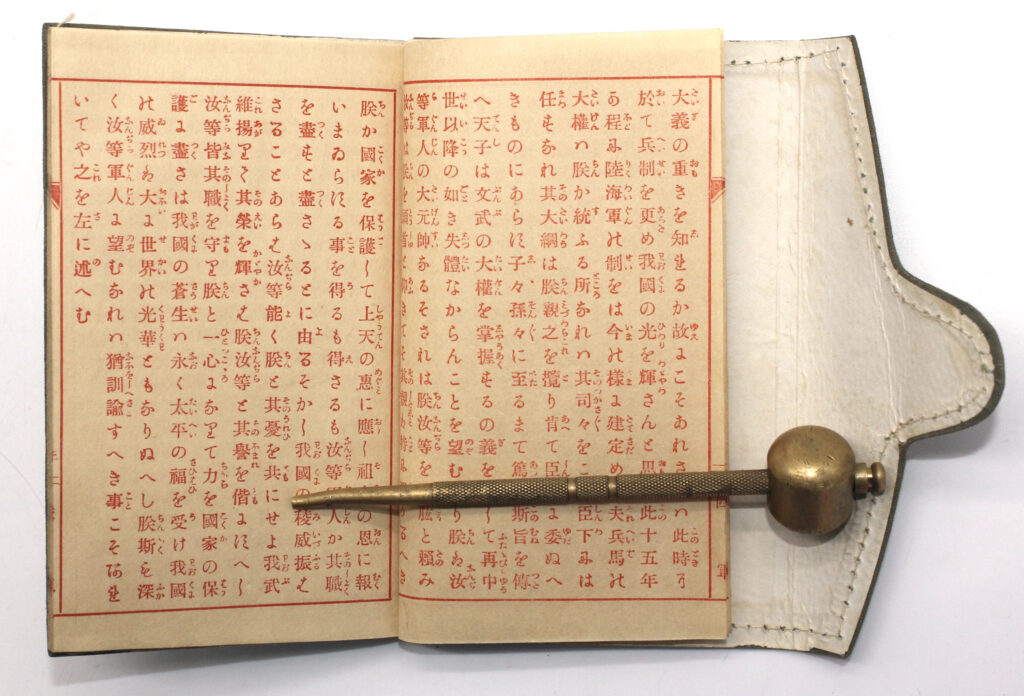 大義の重きを知れるか故にこそあれさハ此時に
於て兵制を更め我國の光を輝さんと思此十五年
の程に陸海軍の制をは今の様に建定め夫兵馬の
大權ハ朕か統ふる所なれハ其司々をこ臣下にハ
任すなれ其大綱は朕親之を攬り肯て臣に委ぬへ
きものにあらす子々孫々に至るまて篤斯旨を傳
へ天子は文武の大權を掌握するの義をして再中
世以降の如き失體なからんことを望むり朕は汝
等軍人の大元帥なるそされは朕汝等を肱と頼み
朕か國家を保護して上天の惠に應し祖の恩に報
いまゐらする事を得るも得さるも汝等人か其職
を盡すと盡さゝるとに由るそかし我國の稜威振は
さることあらは汝等能く朕と其憂を共にせよ我武
維揚りて其榮を輝さは朕汝等と其譽を偕にすへし
汝等皆其職を守り朕と一心になりて力を國家の保
護に盡さは我國の蒼生ハ永く太平の福を受け我國
の威烈は大に世界の光華ともなりぬへし朕斯も深
く汝等軍人に望むなれハ猶訓諭すへき事こそあれ
いてや之を左に述へむ